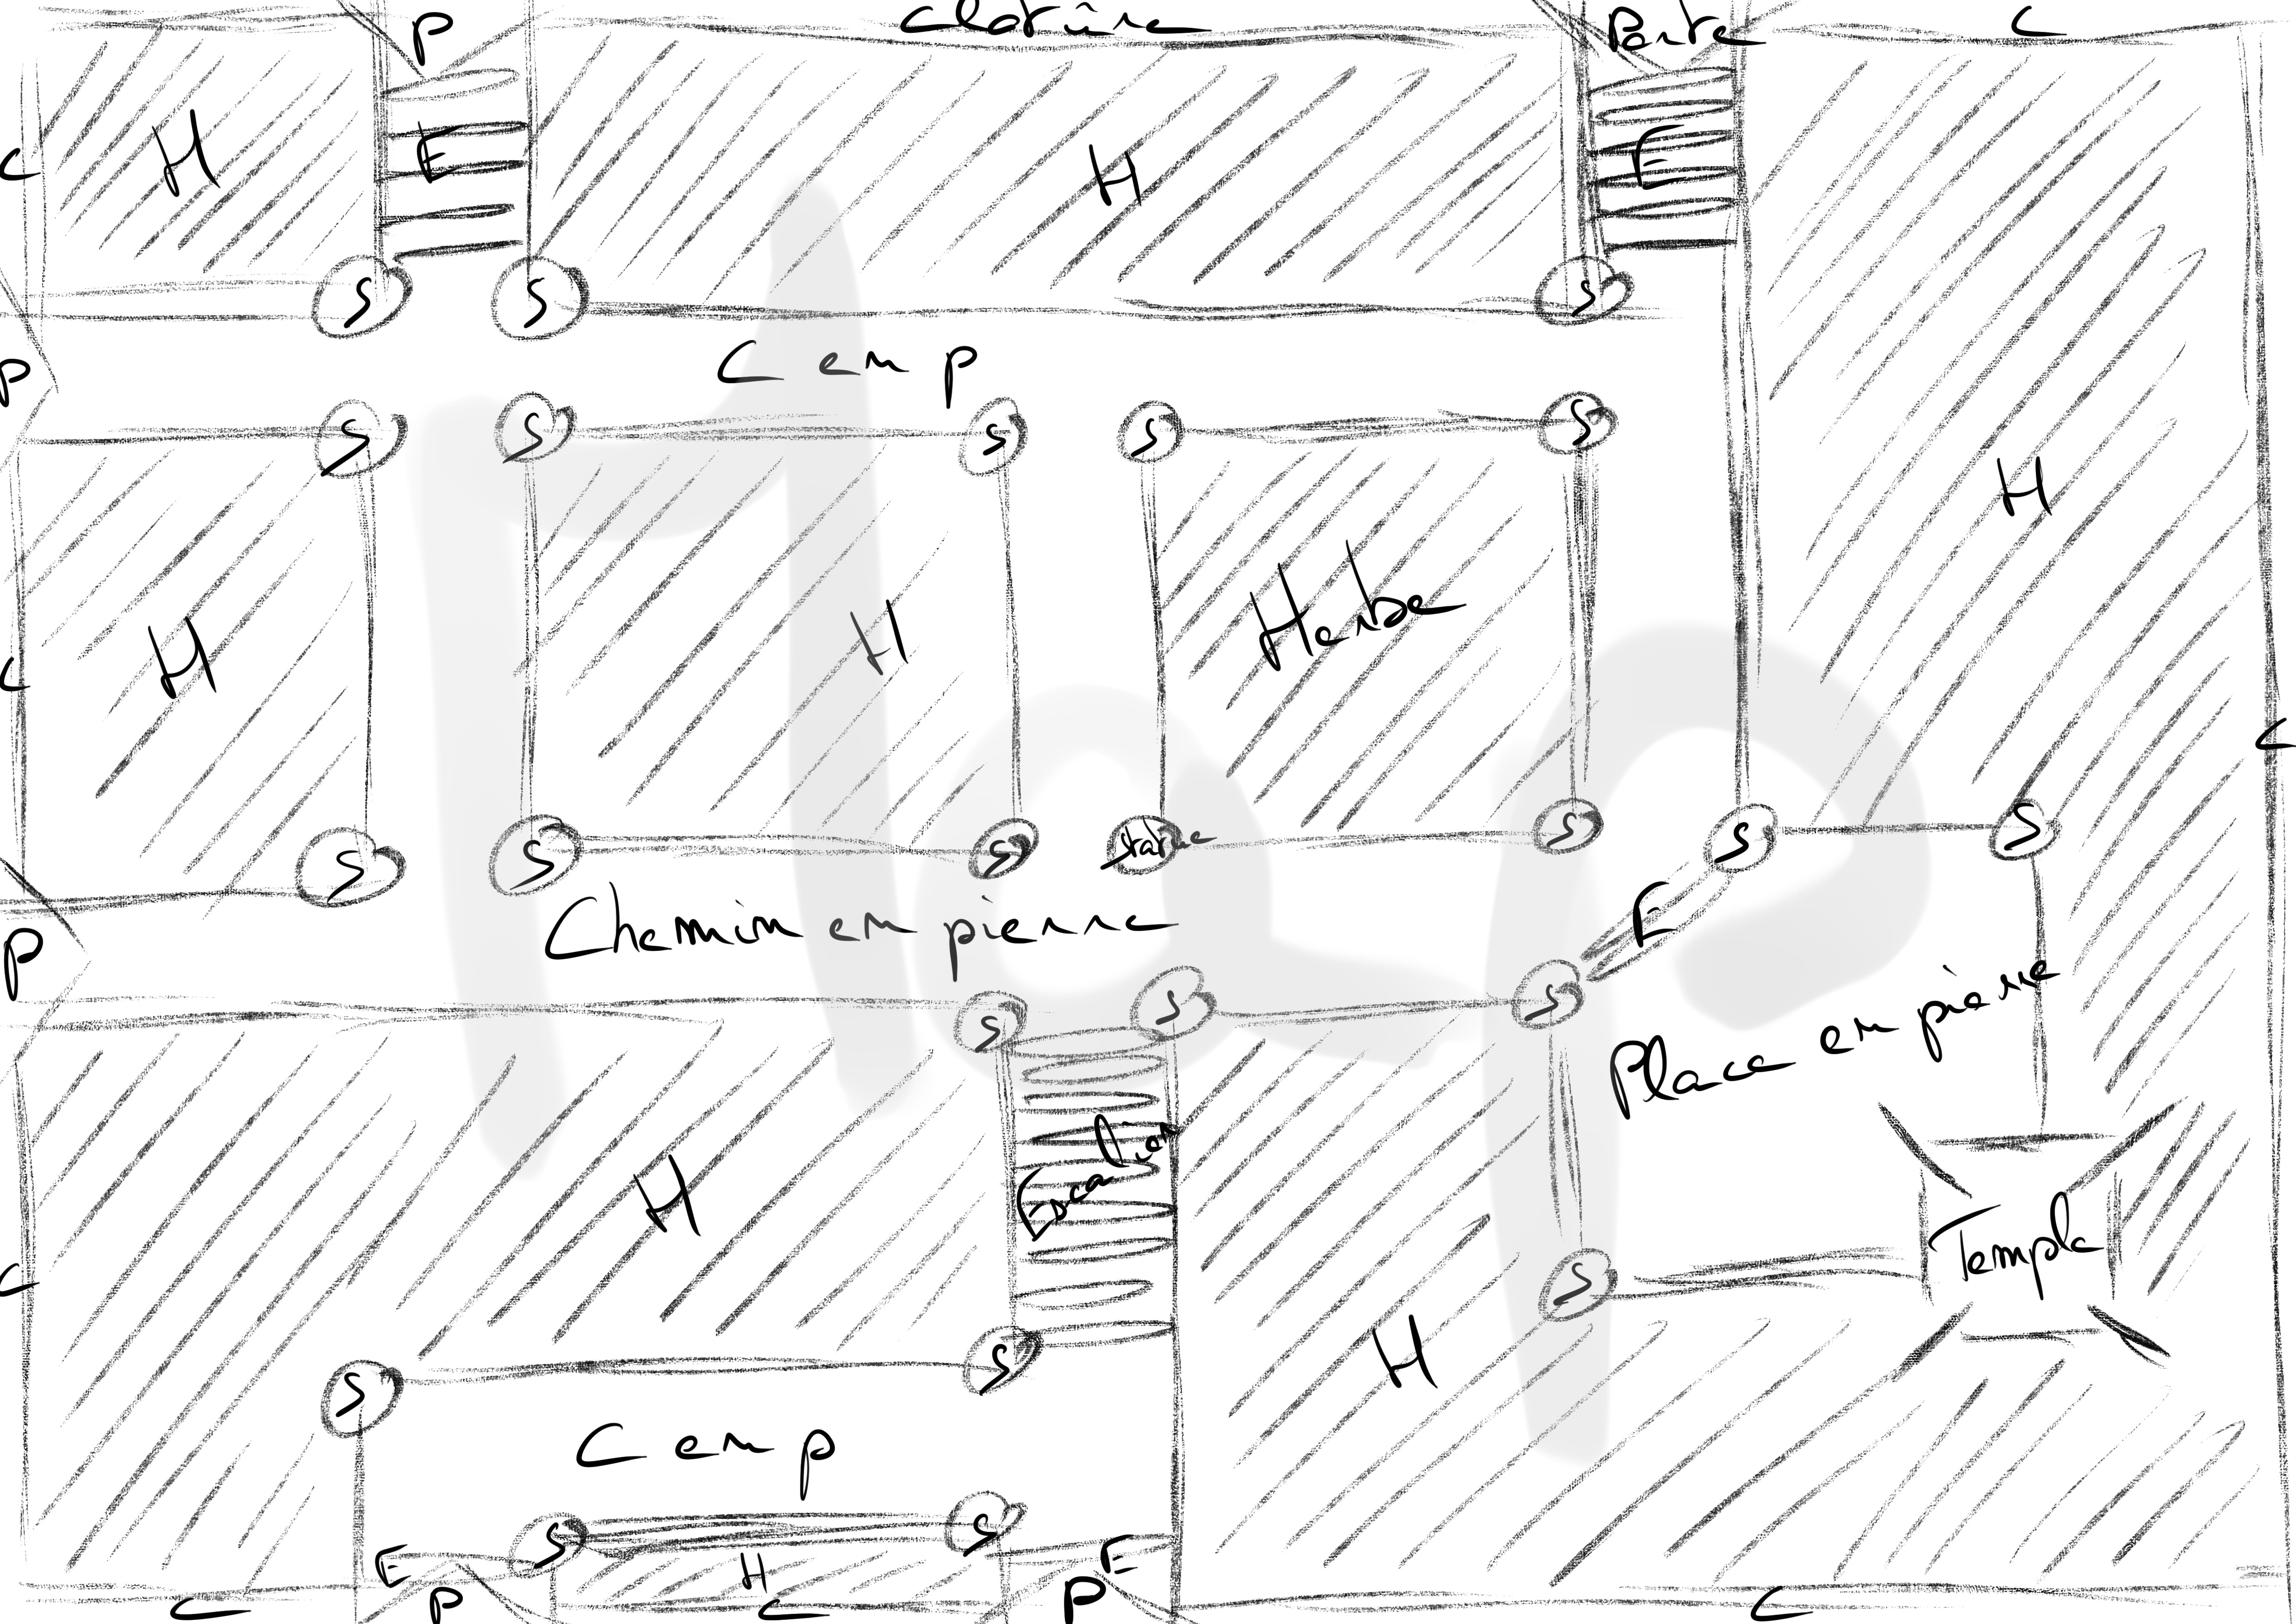 P
Clotûre
Porte
C
C
H
E
H
E
S
S
S
P
C em p
S
S
S
S
S
H
H
H
Herbe
H
C
C
S
S
S
Statue
S
S
S
P
Chemin en pierre
E
S
S
S
Place en pierre
Escalier
H
Temple
C
S
H
S
S
C em p
S
S
E
H
E
C
P
C
P
C
Map